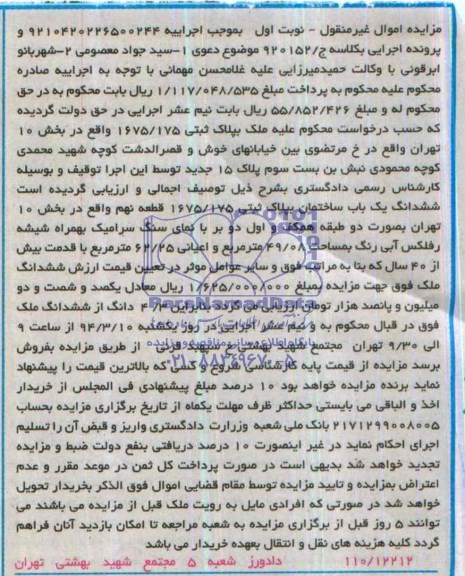 مزایده اموال غیرمنقول - نوبت اول بموجب اجراییه ۹۲۱۰۴۲۰۲۲۶۵۰۰۲۴۴ و
پرونده اجرایی بکلاسه ج/۹۲۰۱۵۲ موضوع دعوی ۱-سید جواد معصومی ۲-شهربانو
ابرقونی با وکالت حمیدمیرزایی علیه غلامحسن مهمانی با توجه به اجراییه صادره
محکوم علیه محکوم به پرداخت مبلغ ۱/۱۱۷/۰۴۸/۵۳۵ ریال بابت محکوم به در حق
محکوم له و مبلغ ۵۵/۸۵۲/۴۲۶ ریال بابت نیم عشر اجرایی در حق دولت گردیده
که حسب درخواست محکوم علیه ملک بپلاک ثبتی ۱۶۷۵/۱۷۵ واقع در بخش ۱۰
تهران واقع در خ مرتضوی بین خیابانهای خوش و قصرالدشت کوچه شهید محمدی
کوچه محمودی نبش بن بست سوم پلاک ۱۵ جدید توسط این اجرا توقیف و بوسیله
کارشناس رسمی دادگستری بشرح ذیل توصیف اجمالی و ارزیابی گردیده است
ششدانگ یک باب ساختمان بپلاک ثبتی ۱۶۷۵/۱۷۵ قطعه نهم واقع در بخش ۱۰
تهران بصورت دو طبقه همکف و اول دو بر با نمای سنگ سرامیک بهمراه شیشه
رفلکس آبی رنگ بمساحت ۴۹/۰۸ مترمربع و اعیانی ۶۲/۲۵ مترمربع با قدمت بیش
از ۴۰ سال که بنا به مراتب فوق و سایر عوامل موثر در تعیین قیمت ارزش ششدانگ
ملک فوق جهت مزایده بمبلغ ۱/۶۲۵/۰۰۰/۰۰۰ ریال معادل یکصد و شصت و دو
میلیون و پانصد هزار تومان ارزیابی می گردد بنابراین ۴/۳ دانگ از ششدانگ ملک
فوق در قبال محکوم به و نیم عشر اجرایی در روز یکشنبه ۹۴/۳/۱۰ از ساعت ۹
الی ۹/۳۰ تهران مجتمع شهید بهشتی خ شهید قرنی از طریق مزایده بفروش
برسد مزایده از قیمت پایه کارشناسی شروع و کسی که بالاترین قیمت را پیشنهاد
نماید برنده مزایده خواهد بود ۱۰ درصد مبلغ پیشنهادی فی المجلس از خریدار
اخذ و الباقی می بایستی حداکثر ظرف مهلت یکماه از تاریخ برگزاری مزایده بحساب
۲۱۷۱۲۹۹۰۰۸۰۰۵ بانک ملی شعبه وزارت دادگستری واریز و قبض آن را تسلیم
اجرای احکام نماید در غیر اینصورت ۱۰ درصد دریافتی بنفع دولت ضبط و مزایده
تجدید خواهد شد بدیهی است در صورت پرداخت کل ثمن در موعد مقرر و عدم
اعتراض بمزایده و تایید مزایده توسط مقام قضایی اموال فوق الذکر بخریدار تحویل
خواهد شد در صورتی که افرادی مایل به رویت ملک قبل از مزایده می باشند می
توانند ۵ روز قبل از برگزاری مزایده به شعبه مراجعه تا امکان بازدید آنان فراهم
گردد کلیه هزینه های نقل و انتقال بعهده خریدار می باشد
۱۱۰/۱۲۲۱۲ دادورز شعبه ۵ مجتمع شهید بهشتی تهران
ParsNamadData
۰۲۱-۸۸۳۴۹۶۷۰-۵